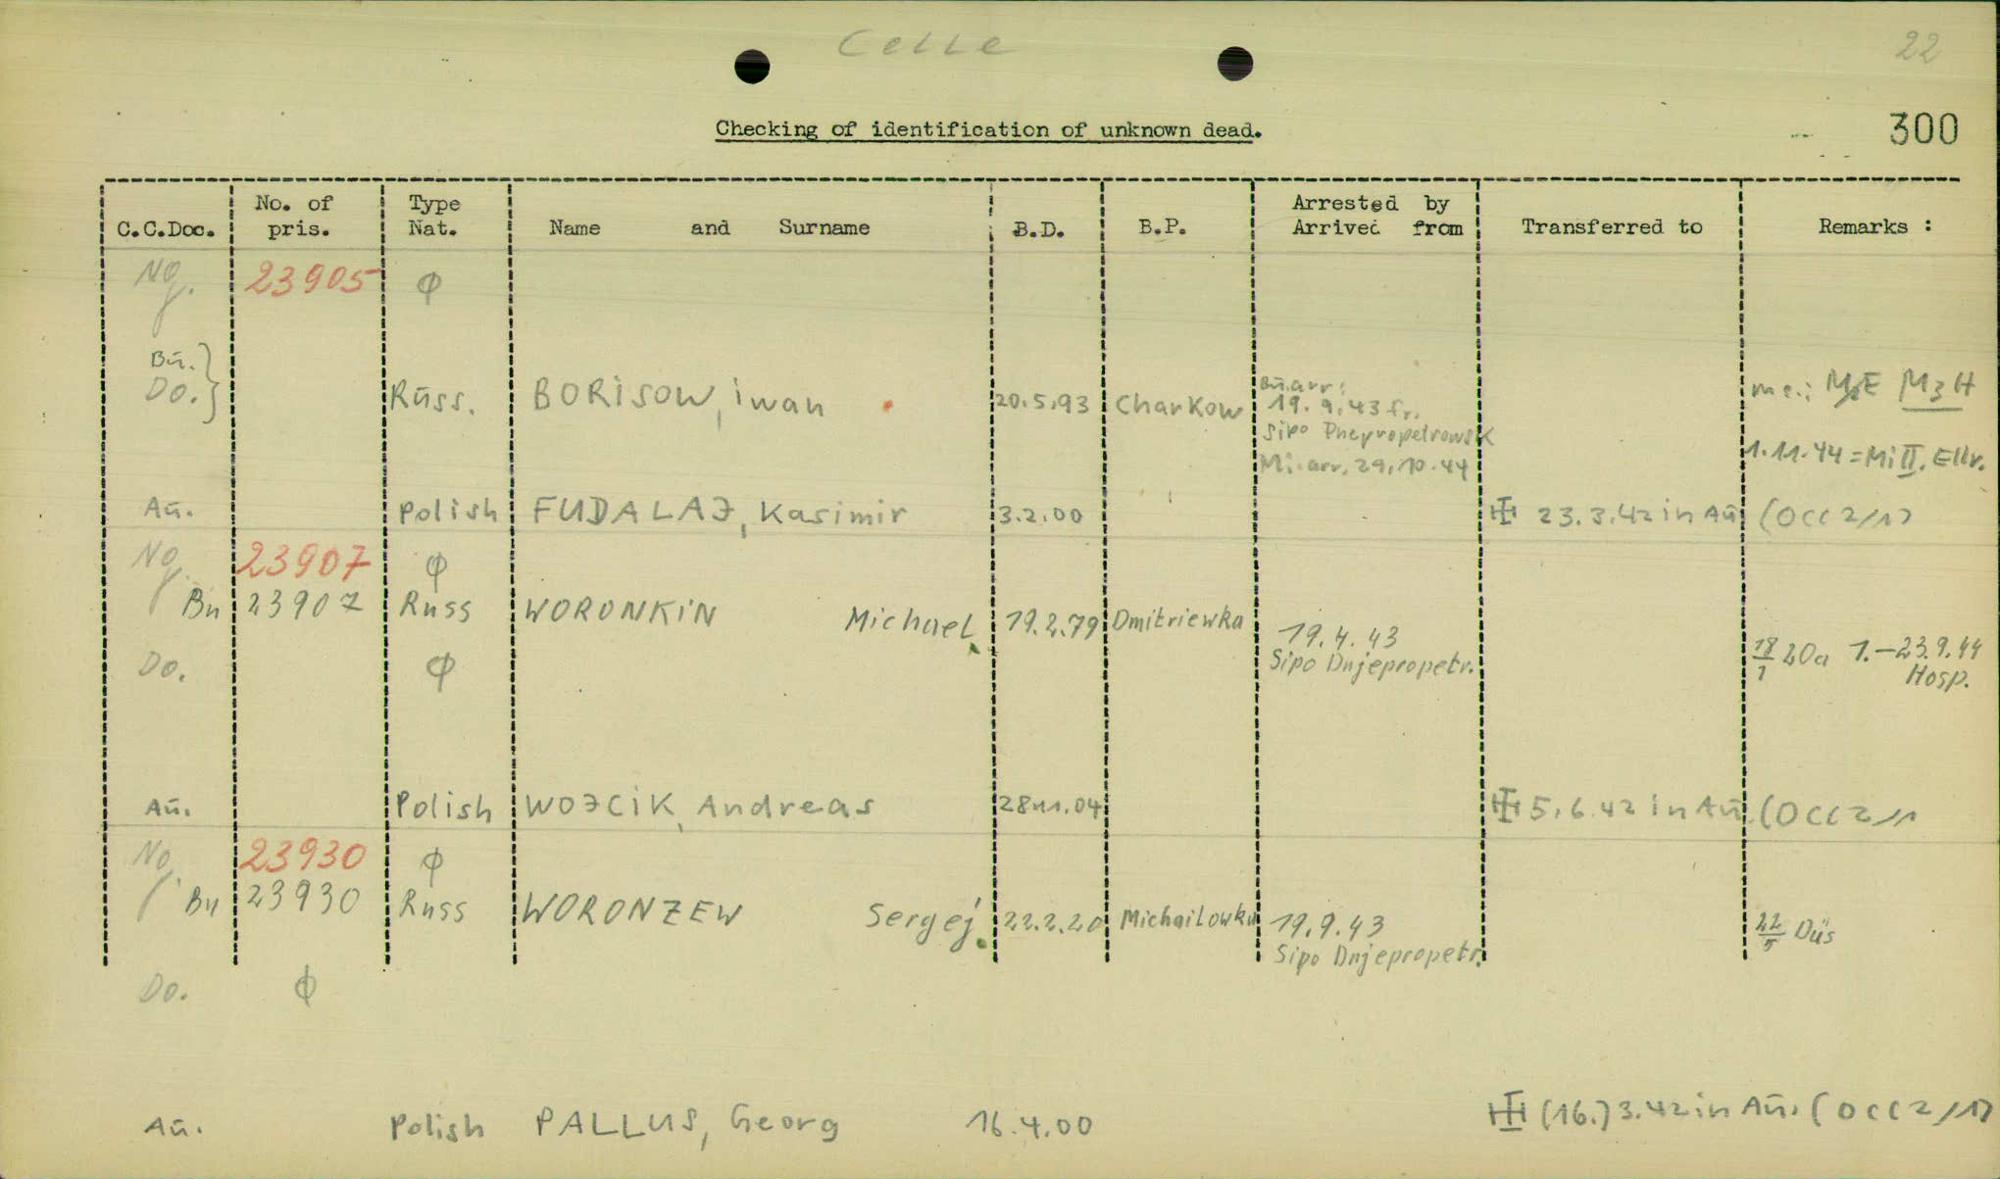 Celle
22
Checking of identification of unknown dead.
300
C.C.Doc. No. of pris. Type Nat. Name and Surname B.D. B.P. Arrested by Arrived from Transferred to Remarks :
No. 23905 φ
Bū.
Do. Rūss. BORISOW, iwan 20.5.93 Charkow Bū.arr: 19.9.43 fr. Sipo Dnepropetrowsk Mi. arr. 29.10.44
M3H
1.11.44 = Mi II. Ellr.
Aū. Polish FUDALAJ, Kasimir 3.2.00 23.3.42 in Aū (OCC 2/1)
No. 23907 φ
Bu 23907 Russ WORONKIN Michael 19.2.79 Dmitriewka 19.4.43 Sipo Dnjepropetr. 18/1 20a 1.-23.9.44 Hosp.
Do. φ
Aū. Polish WOJCIK, Andreas 28.11.04 5.6.42 in Aū. (OCC 2/1
No. 23930 φ
Bu 23930 Russ WORONZEW Sergej 22.2.20 Michailowka 19.9.43 Sipo Dnjepropetr. 22/5 Düs
Do. φ
Aū. Polish PALLUS, Georg 16.4.00 (16.) 3.42 in Aū. (OCC 2/1)